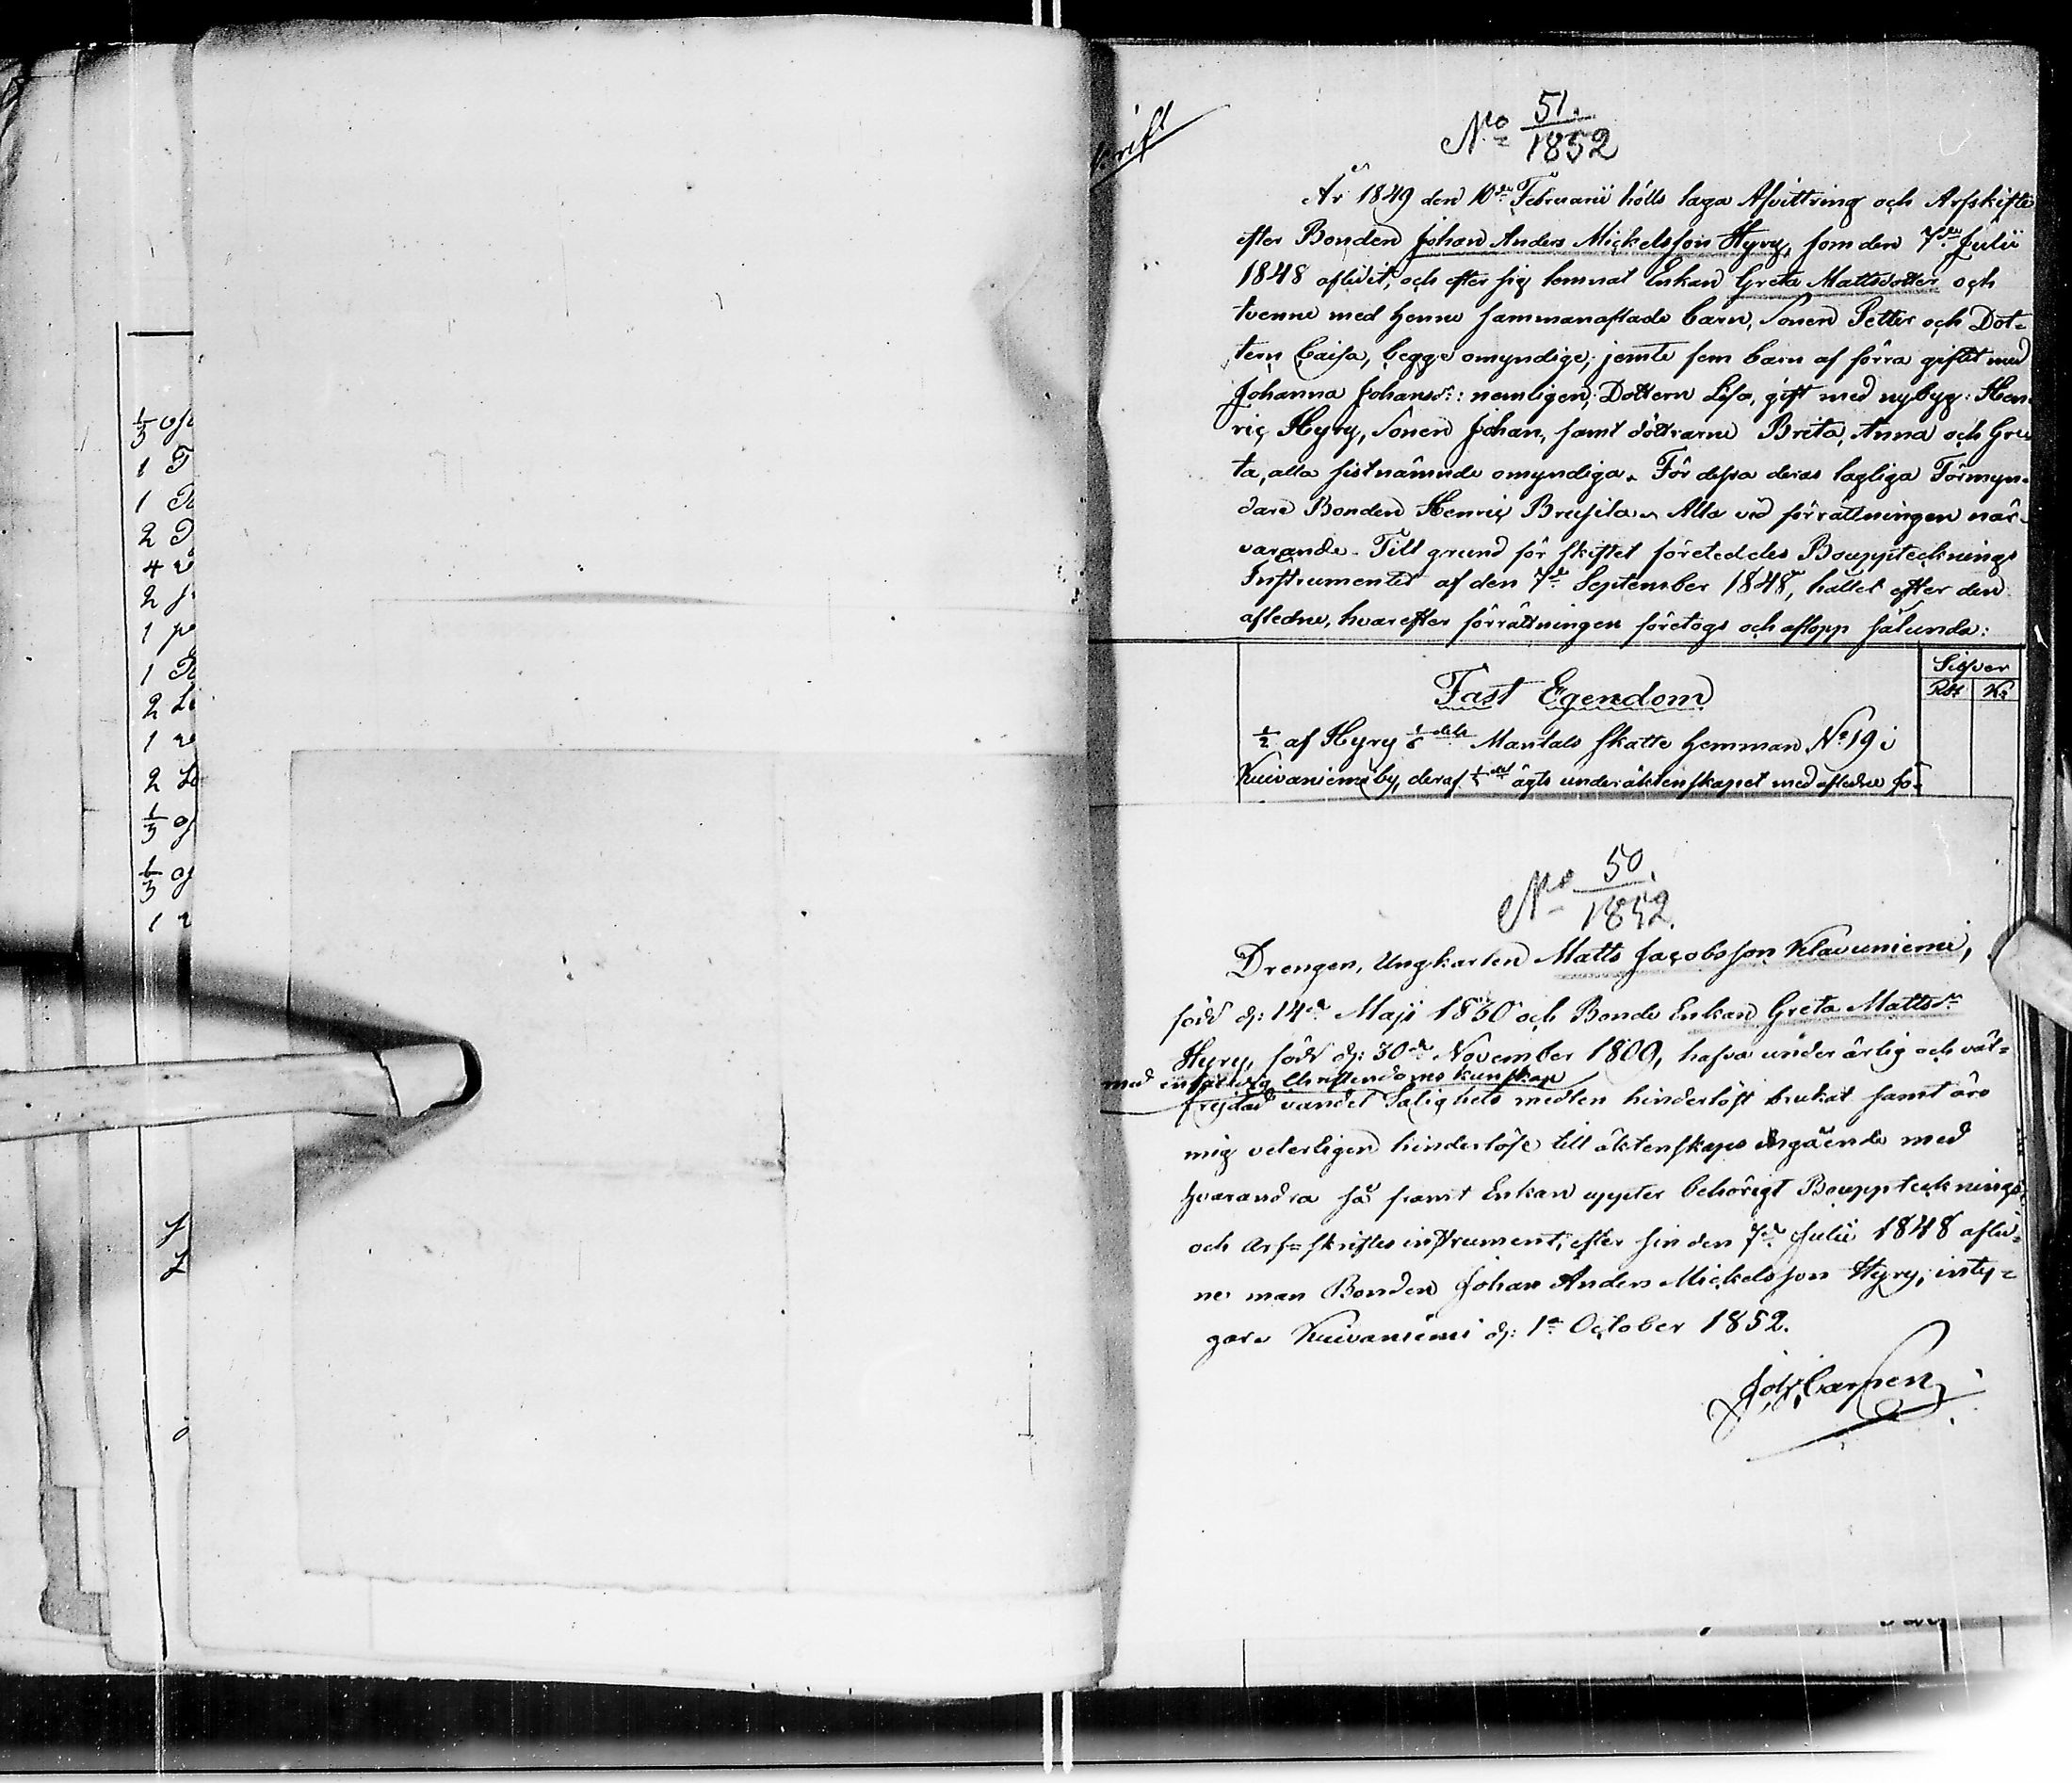 1/3
1 T
1
2
4
2
1
1
2 Li
1
2
1/3
1/3
1
No 51.
1852
År 1849 den 10de Februarii hölls laga Afvittring och Arfskifte
efter Bonden Johan Anders Mickelsson Hyry, som den 7de Julii
1848 aflidit, och efter sig lemnat Enkan Greta Mattsdotter och
tvenne med henne sammanaflade barn, Sonen Petter och Dot=
tern Caisa, begge omyndige, jemte fem barn af förra giftet med
Johanna Johansdr: nemligen: Dottern Lisa, gift med nybyg: Hen
ric Hyry, Sonen Johan, samt döttrarne Brita, Anna och Gre
ta, alla sistnämnde omyndiga. För dessa deras lagliga Förmyn-
dare Bonden Henric. Alla vid förrättningen när-
varande. Till grund för skiftet företeddes Bouppteknings
Instrumentet af den 7de September 1848, hållet efter den
aflidne, hvarefter förrättningen företogs och aflopp sålunda:
Silfver
Rbl Ko
Fast Egendom
1/2 af Hyry 1/6 dels Mantals skatte hemman No 19 i
Kuivaniemi by, deraf ägts under äktenskapet med aflidne Jo-
No 50.
1852.
Drengen, Ungkarlen Matts Jacobsson Klavuniemi,
född d: 14de Maji 1830 och Bonde Enkan Greta Mattsdr
Hyry, född d: 30de November 1809, hafva under ärlig och väl=
med christendoms kunskap
frejdad vandel Salighets medlen hinderlöst brukat samt äro
mig veterligen hinderlöse till äktenskaps ingående med
hvarandra så framt Enkan uppter behörigt Bouppteknings
och Arf=skiftes instrument, efter sin den 7de Julii 1848 aflid=
ne man Bonden Johan Anders Mickelsson Hyry, inty=
gar Kuivaniemi d: 1a October 1852.
Joh. Carlsen